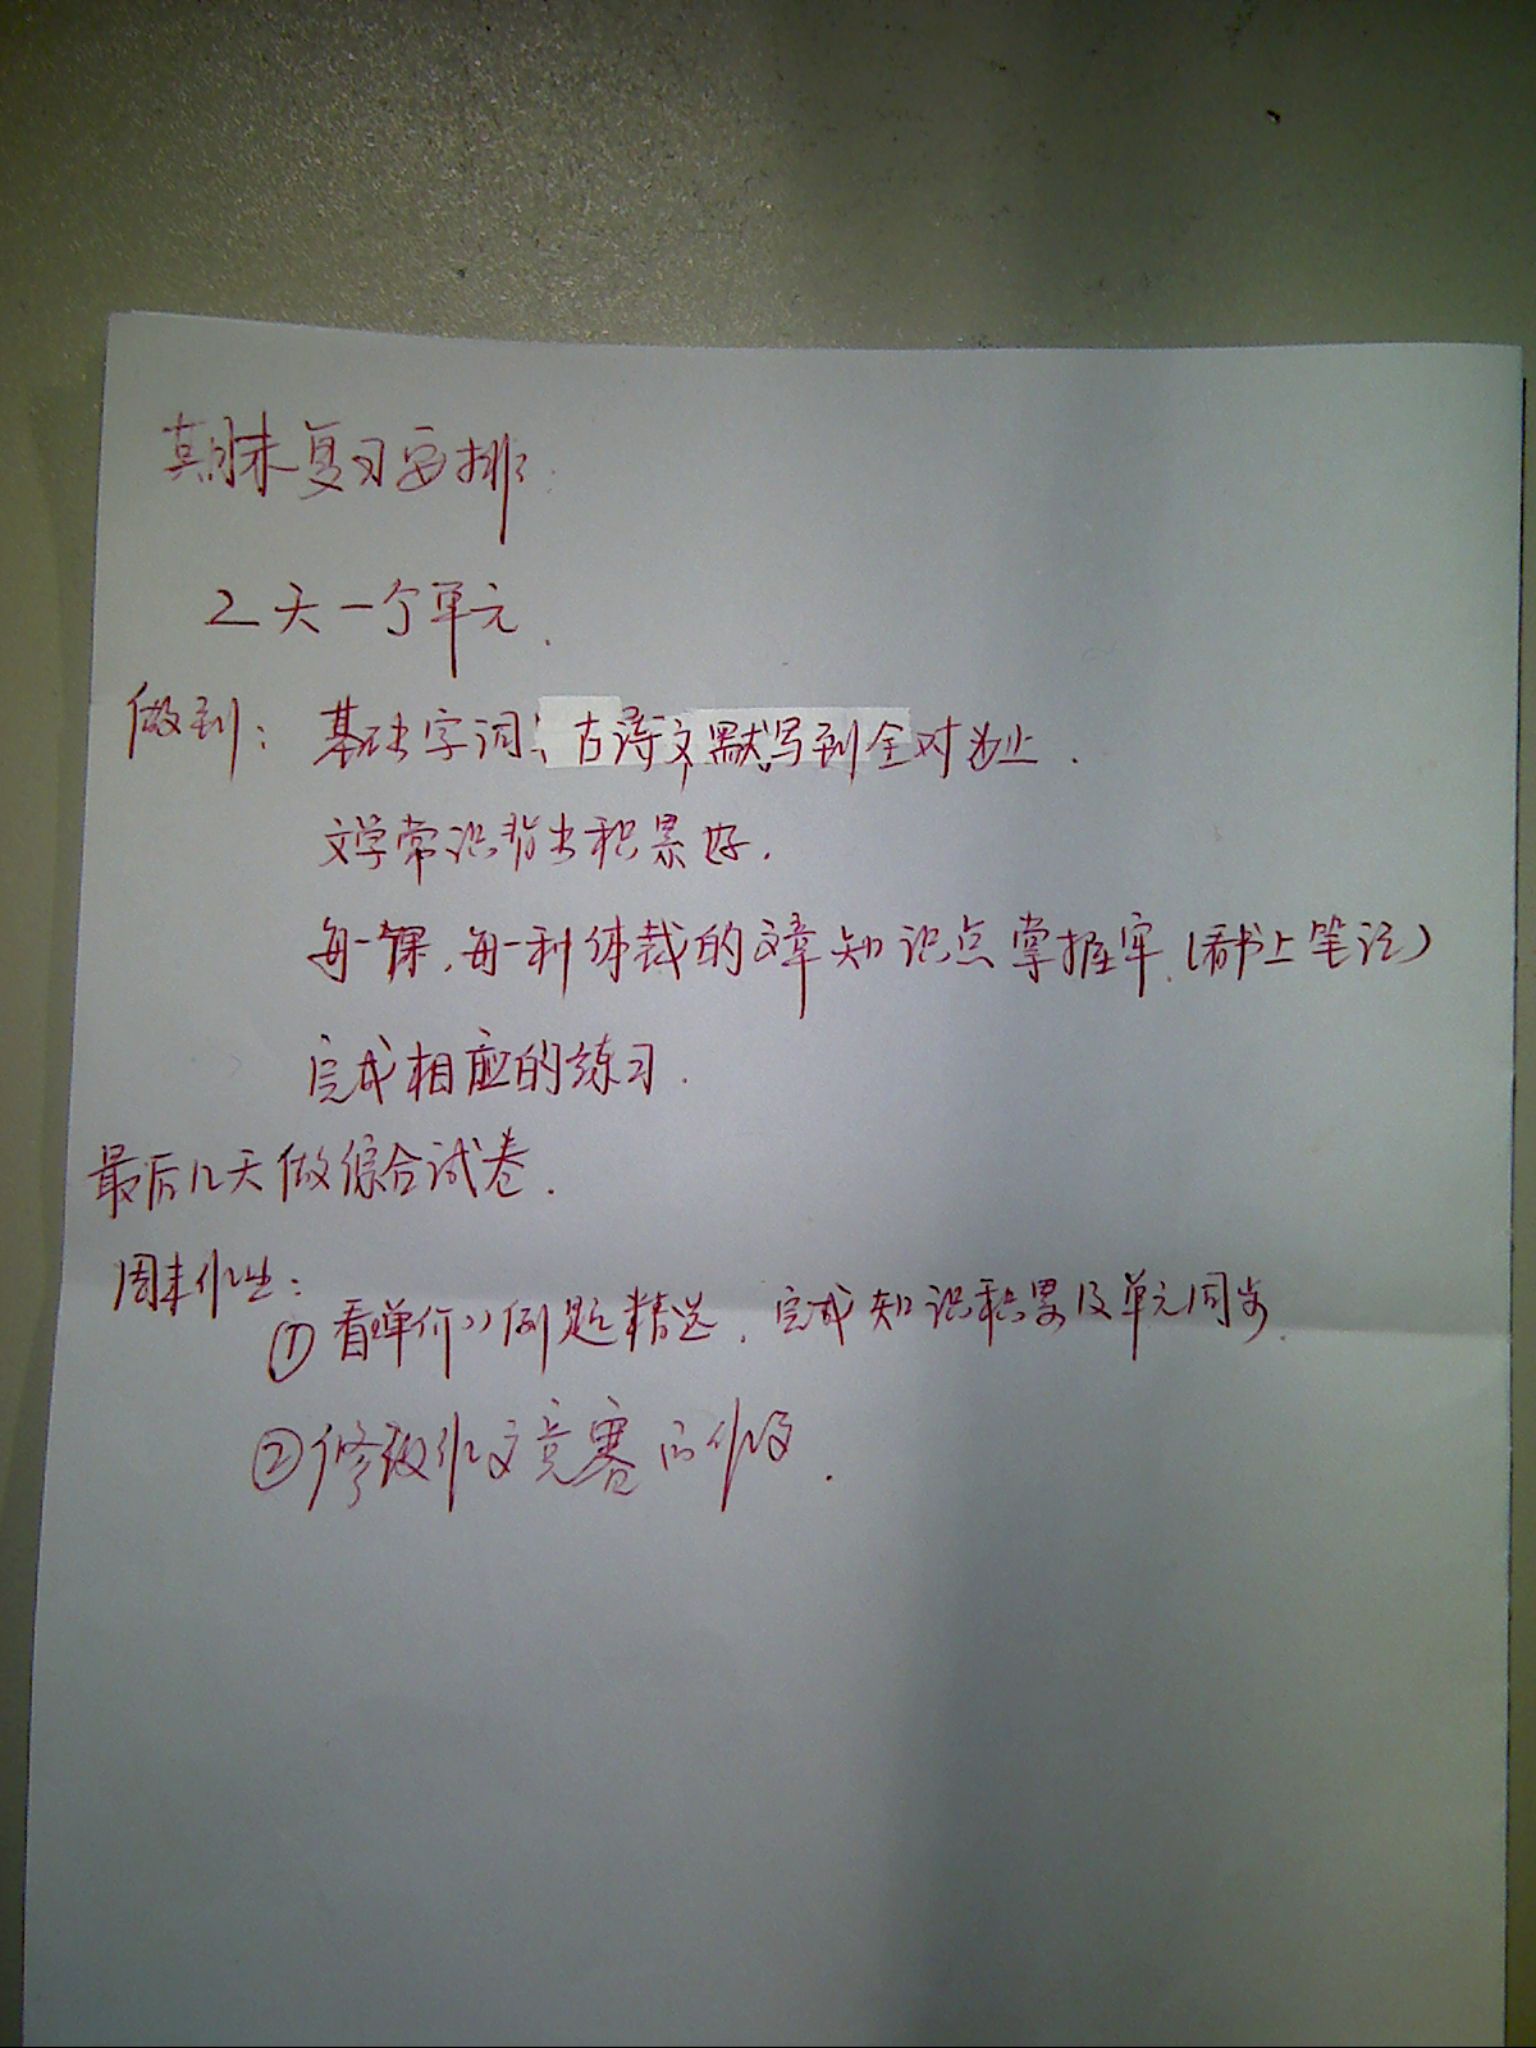 期末复习安排.
2天一个单元.
做到: 基础字词、古诗文默写到全对为止.
文学常识背出积累好.
每一课,每一种体裁的文章知识点掌握牢.(看书上笔记)
完成相应的练习.
最后几天做综合试卷.
周末作业:
① 看《单价》例题精选.完成知识积累及单元同步.
②修改作文竞赛的作文.